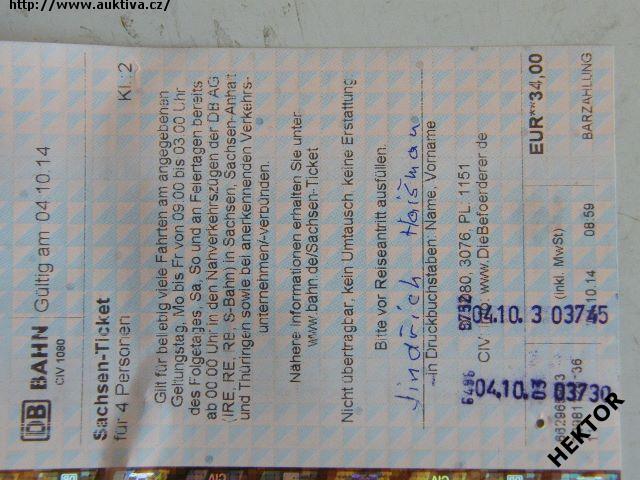 http://www.auktiva.cz/
DB BAHN Gültig am 04.10.14
CIV 1080
Sachsen-Ticket Kl.:2
für 4 Personen
Gilt für beliebig viele Fahrten am angegebenen
Geltungstag, Mo bis Fr von 09.00 bis 03.00 Uhr
des Folgetages, Sa, So und an Feiertagen bereits
ab 00.00 Uhr in den Nahverkehrszügen der DB AG
(IRE, RE, RB, S-Bahn) in Sachsen, Sachsen-Anhalt
und Thüringen sowie bei anerkennenden Verkehrs-
unternehmen/-verbünden.
Nähere Informationen erhalten Sie unter
www.bahn.de/Sachsen-Ticket
Nicht übertragbar, kein Umtausch, keine Erstattung.
Bitte vor Reiseantritt ausfüllen.
Jindřich Haišman
in Druckbuchstaben: Name, Vorname
1080, 3076, PL: 1151
CIV www.DieBefoerderer.de
04.10. 3 03745
EUR**34,00
6496 04.10. 3 03730
(inkl. MwSt)
10.14 08:59
BARZAHLUNG
HEKTOR